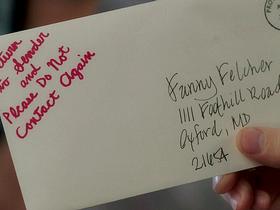 eturn
o Sender
and
Please Do Not
Contact Again
Fanny Felcher
1111 Foothill Road
Oxford, MD
21654